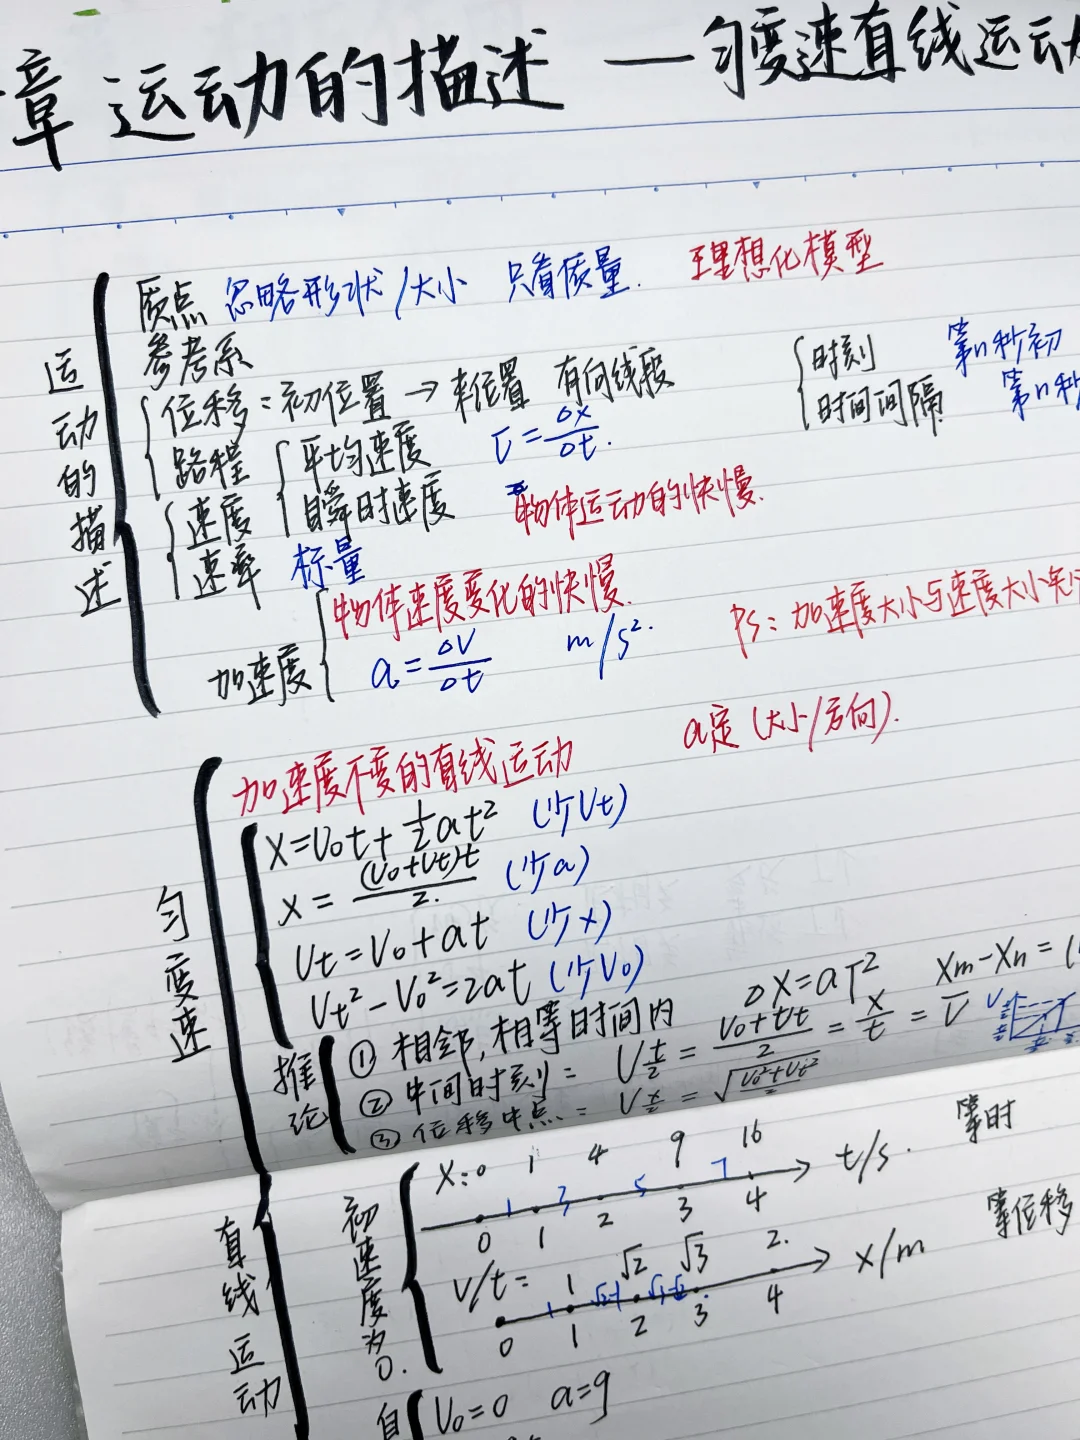 章 运动的描述 — 匀变速直线运动
运动的描述
质点 忽略形状/大小 只看质量. 理想化模型
参考系
位移: 初位置 → 末位置 有向线段
时刻 第n秒初
路程
时间间隔 第n秒
速度 平均速度 v̄=Δx/Δt.
瞬时速度 物体运动的快慢.
速率 标量
加速度 物体速度变化的快慢.
a=ΔV/Δt m/s².
PS: 加速度大小与速度大小无
匀变速直线运动
加速度不变的直线运动 a定 (大小/方向).
X=V₀t+½at² (少Vt)
x=(V₀+Vt)t/2. (少a)
Vt=V₀+at (少x)
Vt²-V₀²=2at (少V₀)
推论
① 相邻,相等时间内 ΔX=aT² Xm-Xn=(
② 中间时刻= V t/2 = (V₀+Vt)/2 = x/t = v̄
③ 位移中点.= V x/2 = √((V₀²+Vt²)/2)
初速度为0.
X:0 1 4 9 16
1 3 5 7 t/s. 等时
0 1 2 3 4
V/t= 1 √2 √3 2.
1 √2-1 √3-√2 x/m 等位移
0 1 2 3 4
自 V₀=0 a=g